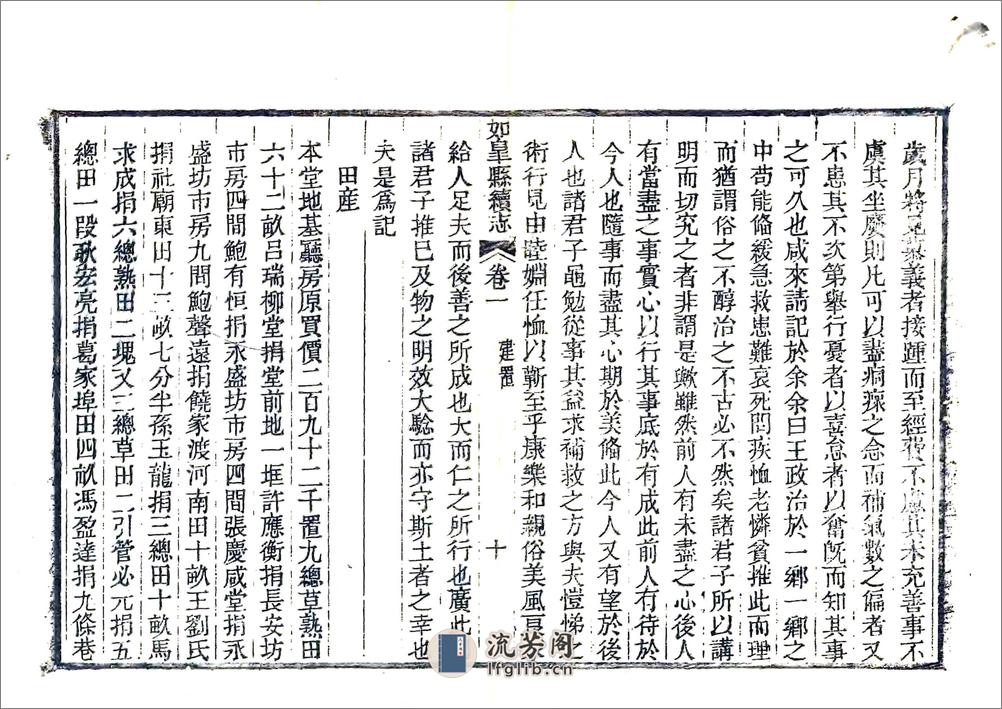 歲月將見慕義者接踵而至經費不慮其本充善事不
虞其坐廢則凡可以盡痌瘝之念而補氣數之偏者又
不患其不次第舉行憂者以喜怠者以奮旣而知其事
之可久也咸來請記於余余曰王政治於一鄉一鄉之
中苟能偹緩急救患難哀死問疾恤老憐貧推此而理
而猶謂俗之不醇治之不古必不然矣諸君子所以講
明而切究之者非謂是歟雖然前人有未盡之心後人
有當盡之事實心以行其事底於有成此前人有待於
今人也隨事而盡其心期於美偹此今人又有望於後
人也諸君子黽勉從事其益求補救之方與夫愷悌之
術行見由睦婣任恤以蘄至乎康樂和親俗美風
如皋縣續志 卷一 建置 十
給人足夫而後善之所成也大而仁之所行也廣此
諸君子推已及物之明效大騐而亦守斯土者之幸也
夫是爲記
田産
本堂地基廳房原買價二百九十二千置九總草熟田
六十二畝呂瑞柳堂捐堂前地一框許應衡捐長安坊
市房四間鮑有恒捐永盛坊市房四間張慶咸堂捐永
盛坊市房九間鮑聲遠捐饒家渡河南田十畝王劉氏
捐社廟東田十三畝七分半孫玉龍捐三總田十畝馬
求成捐六總熟田二塊又三總草田二引管必元捐五
總田一段耿宏亮捐葛家埠田四畝馮盈達捐九條巷
流芳阁
lfglib.cn